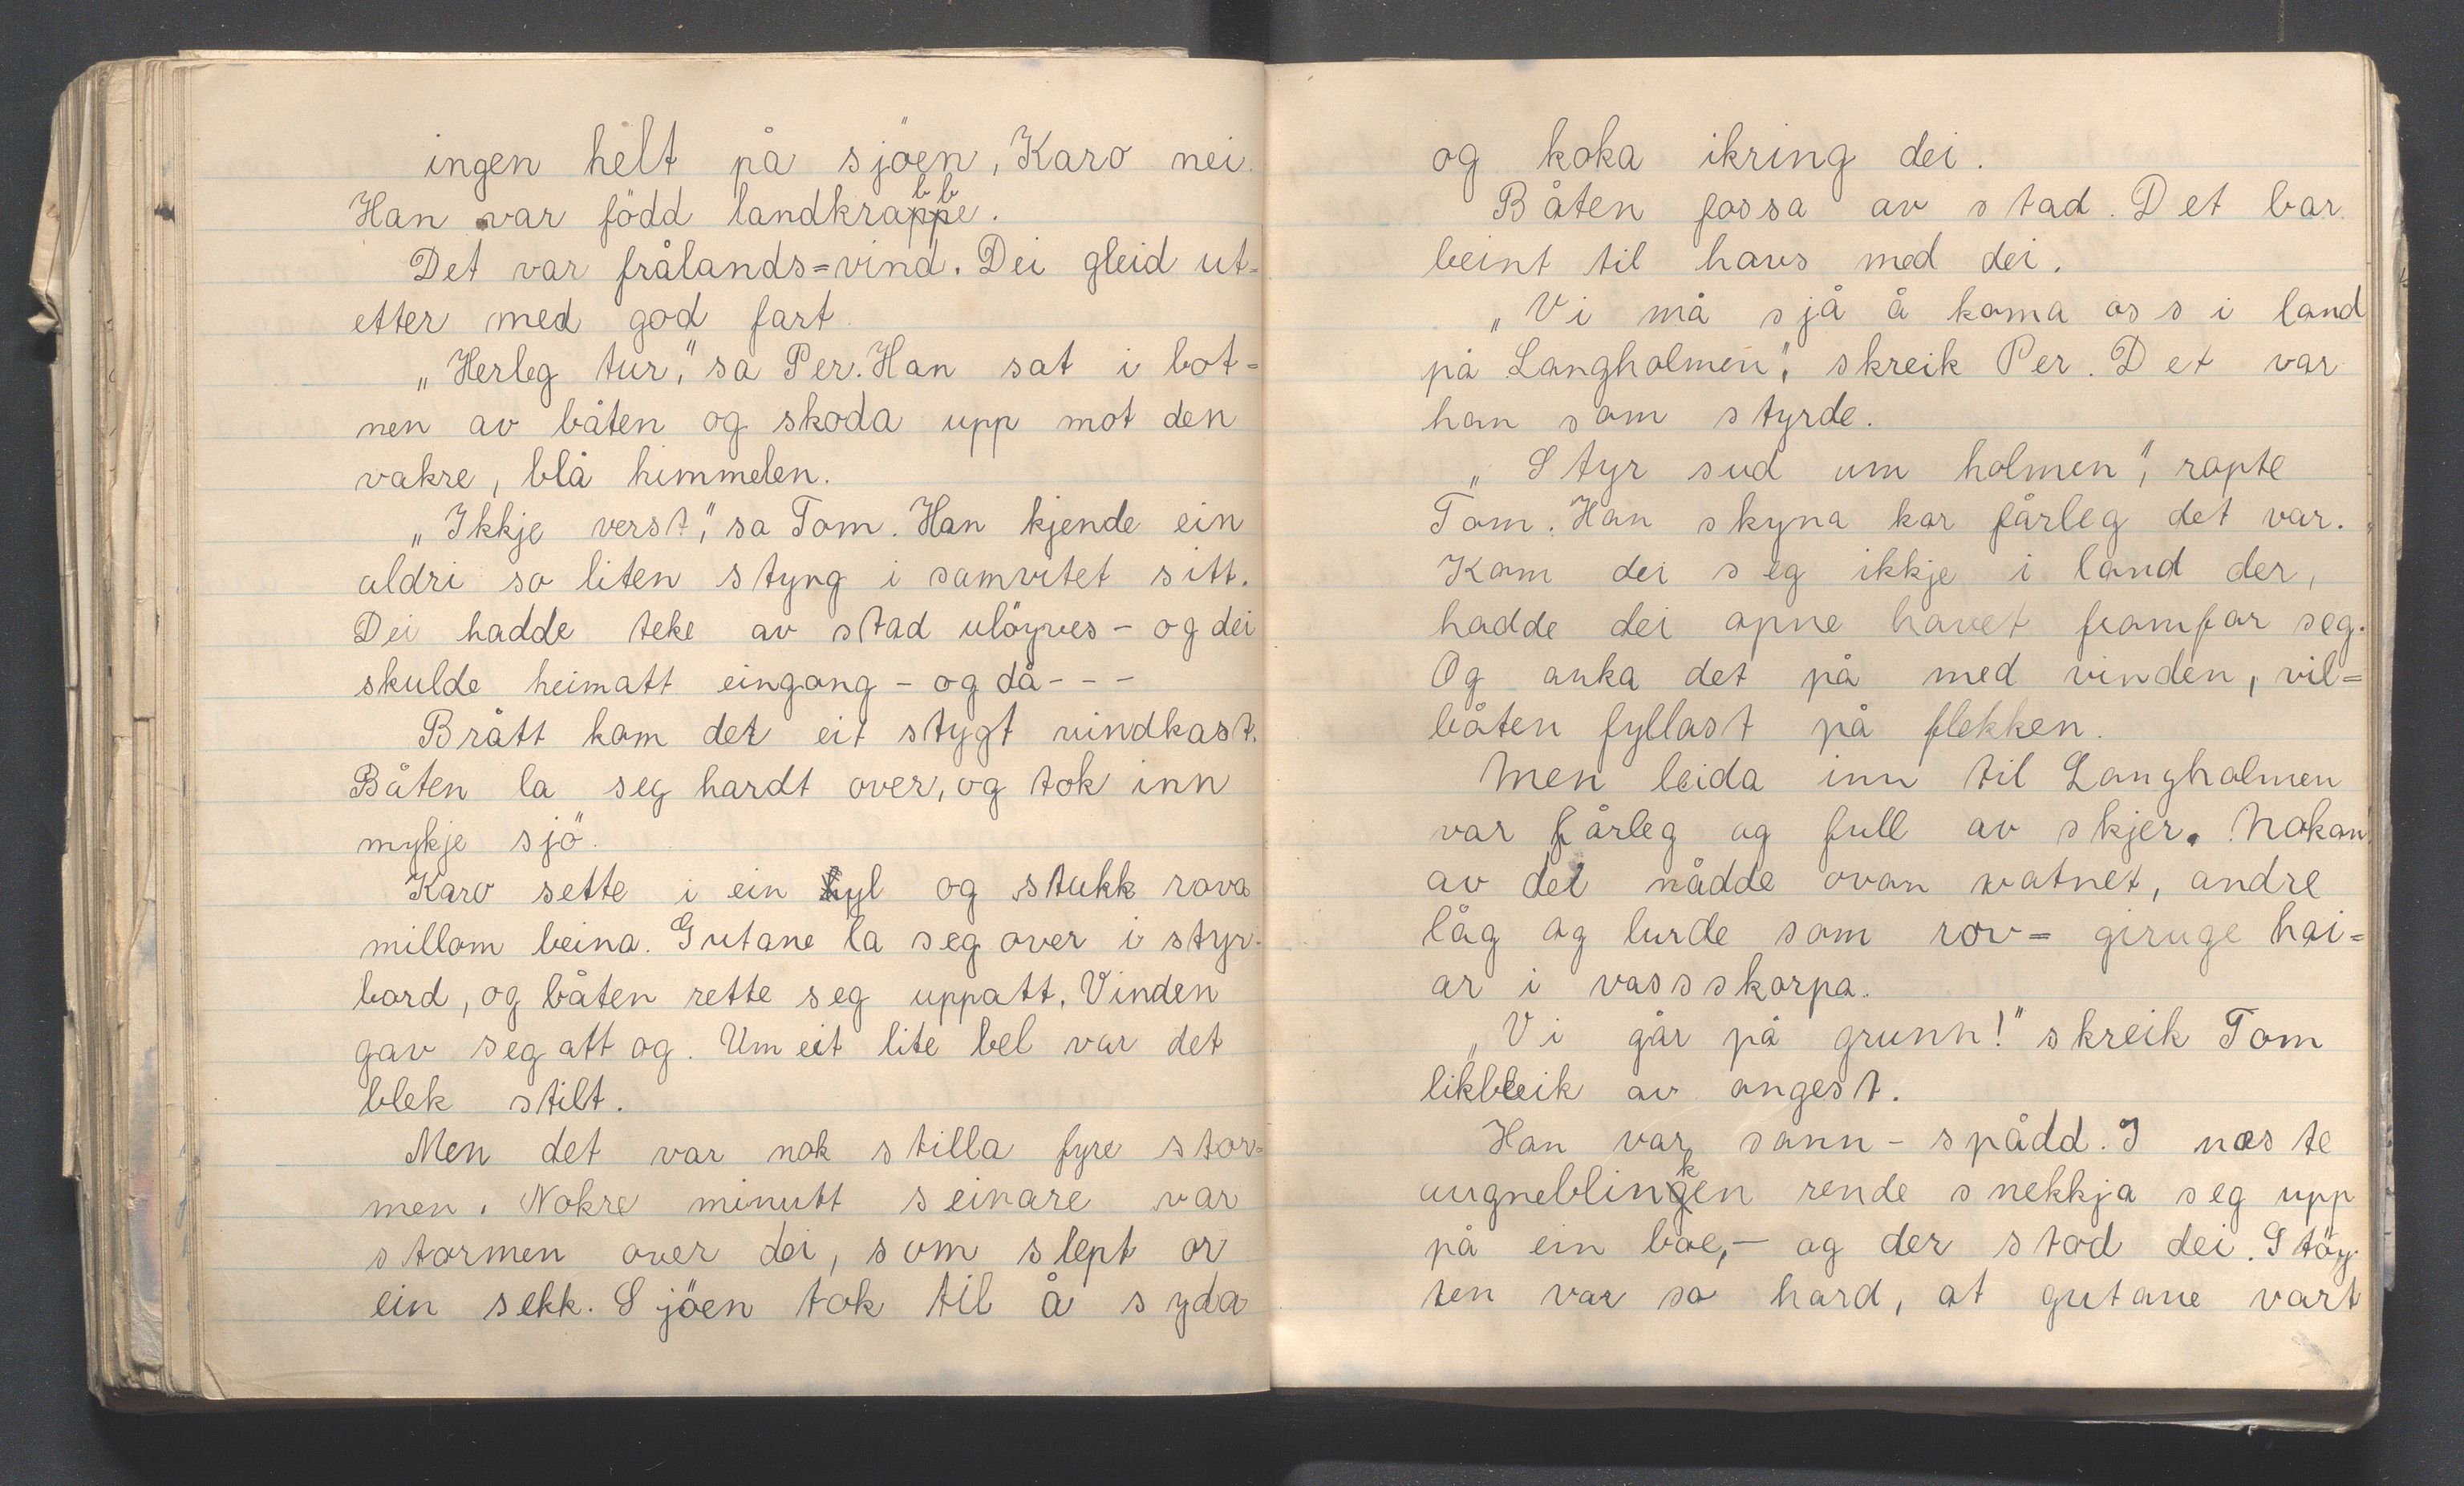 ingen helt på sjöen, Karo nei.
Han var född landkrabbe.
Det var frålands=vind. Dei gleid ut-
etter med god fart.
„Herleg tur," sa Per. Han sat i bot-
nen av båten og skoda upp mot den
vakre, blå himmelen.
„Ikkje verst," sa Tom. Han kjende ein
aldri so liten styng i samvitet sitt.
Dei hadde teke av stad ulöyves - og dei
skulde heimatt eingong - og då - - -
Brått kom det eit stygt vindkast.
Båten la seg hardt over, og tok inn
mykje sjö.
Karo sette i ein hyl og stukk rova
millom beina. Gutane la seg over i styr-
bord, og båten rette seg uppatt. Vinden
gav seg att og. Um eit lite bel var det
blek stilt.
Men det var nok stilla fyre stor-
men. Nokre minutt seinare var
stormen over dei, som slept or
ein sekk. Sjöen tok til å syda
og koka ikring dei.
Båten fossa av stad. Det bar
beint til havs med dei.
„Vi må sjå å koma oss i land
på Langholmen", skreik Per. Det var
han som styrde.
„Styr sud um holmen", ropte
Tom. Han skyna kor fårleg det var.
Kom dei seg ikkje i land der,
hadde dei opne havet framfor seg.
Og auka det på med vinden, vil=
båten fyllast på flekken.
Men leida inn til Langholmen
var fårleg og full av skjer. Nokon
av dei nådde ovan vatnet, andre
låg og lurde som rov= giruge hai=
ar i vassskorpa.
„Vi går på grunn!" skreik Tom
likbleik av angest.
Han var sann-spådd. I næste
augneblinken rende snekkja seg upp
på ein boe, - og der stod dei. Stöy-
ten var so hard, at gutane vart